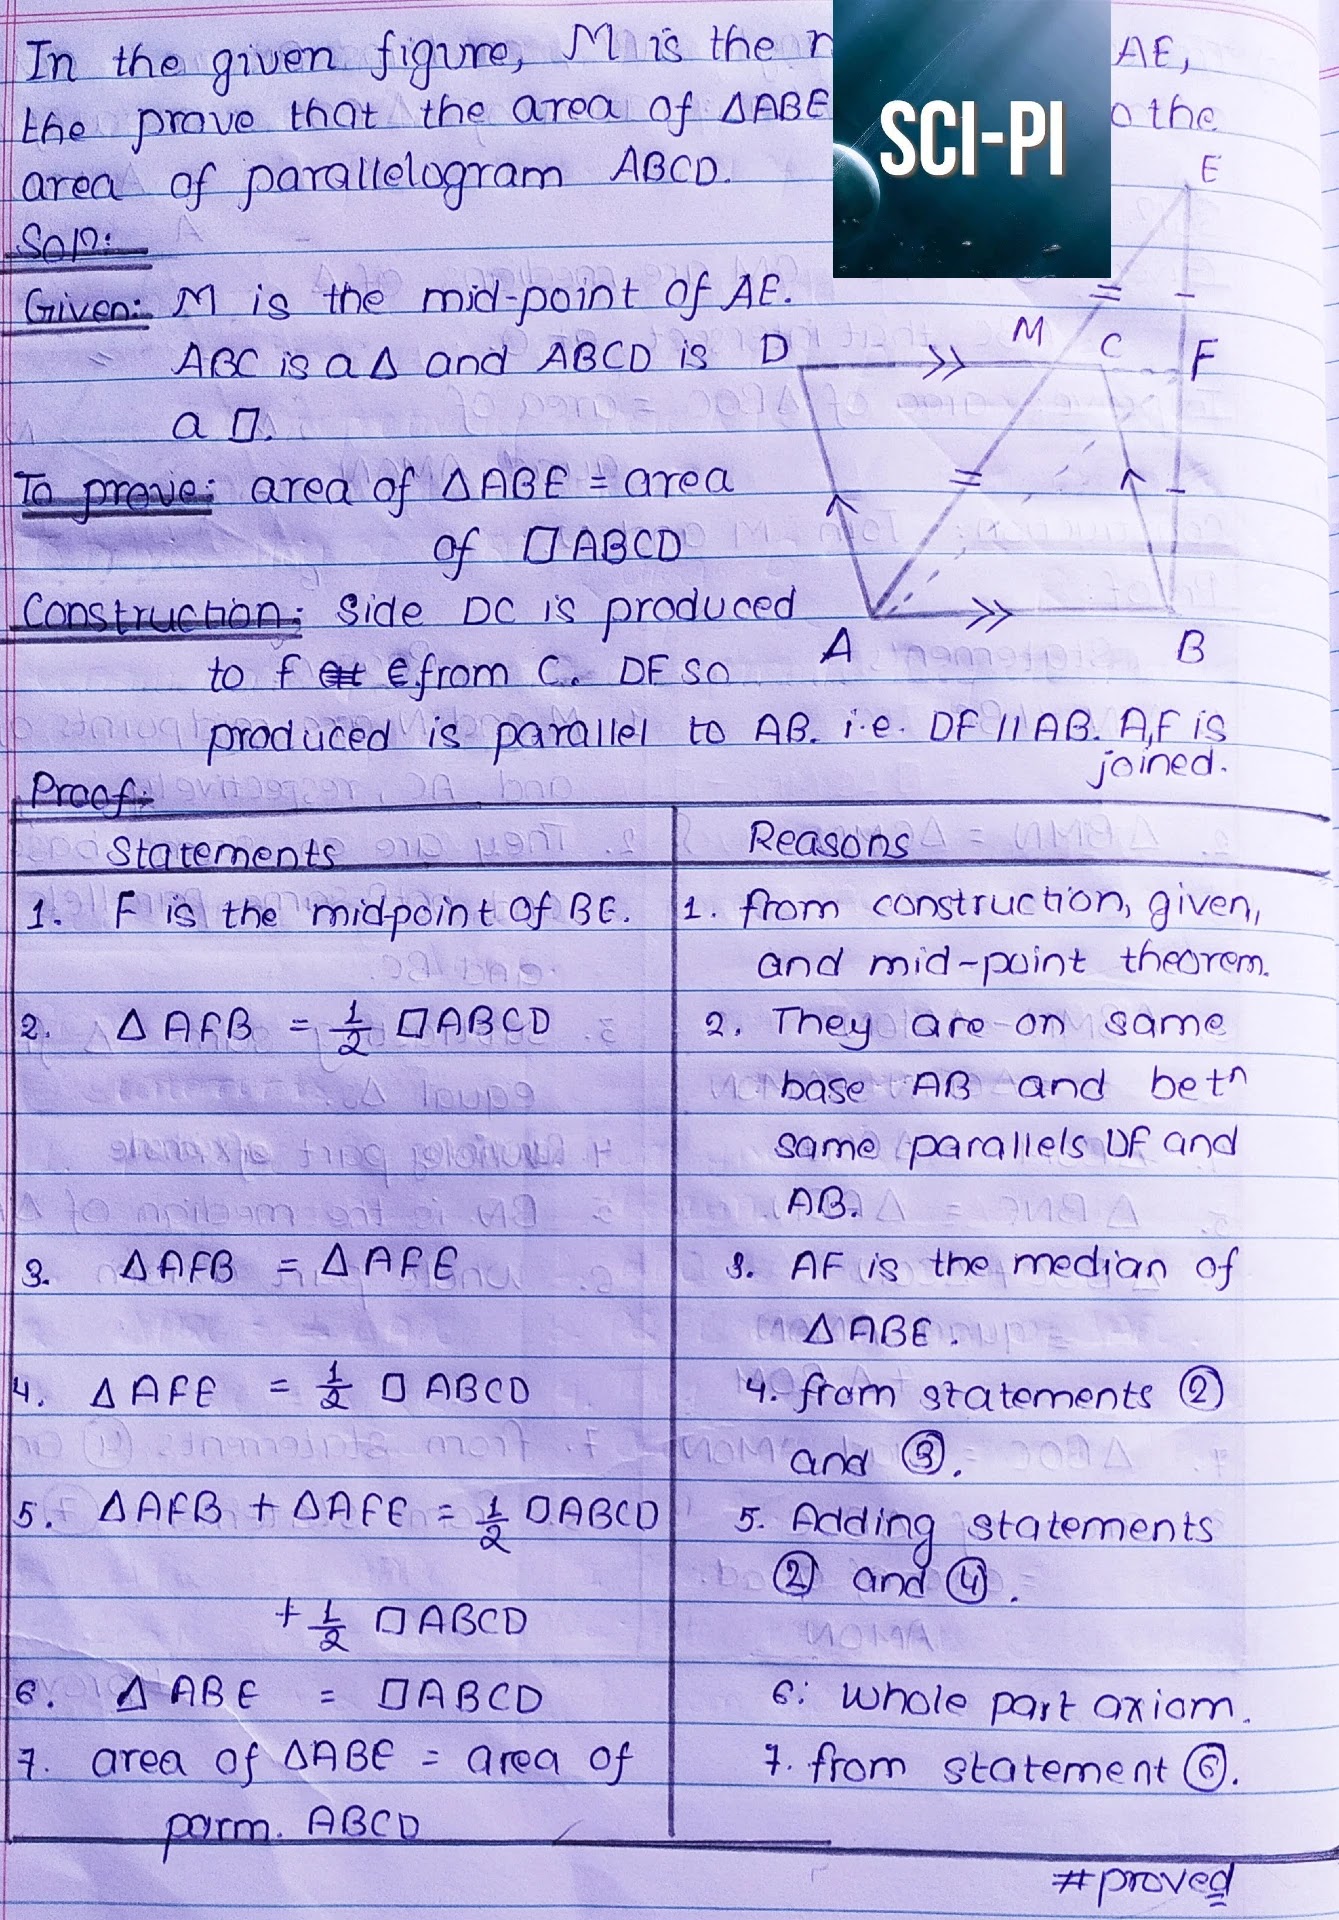 In the given figure, M is the AE,
the prove that the area of ΔABE the
area of parallelogram ABCD.
SCI-PI
Soln:
Given: M is the mid-point of AE.
ABC is a Δ and ABCD is
a ▱.
To prove: area of ΔABE = area
of ▱ABCD
Construction: Side DC is produced
to F from C. DF so
produced is parallel to AB. i.e. DF // AB. A,F is
joined.
E
M
D
C
F
A
B
Proof:
Statements Reasons
1. F is the midpoint of BE. 1. from construction, given,
and mid-point theorem.
2. Δ AFB = 1/2 ▱ABCD 2. They are on same
base AB and betn
same parallels DF and
AB.
3. ΔAFB = ΔAFE 3. AF is the median of
ΔABE.
4. ΔAFE = 1/2 ▱ ABCD 4. from statements ②
and ③.
5. ΔAFB + ΔAFE = 1/2 ▱ABCD 5. Adding statements
+ 1/2 ▱ABCD ② and ④.
6. ΔABE = ▱ABCD 6: whole part axiom.
7. area of ΔABE = area of 7. from statement ⑥.
parm. ABCD
#proved